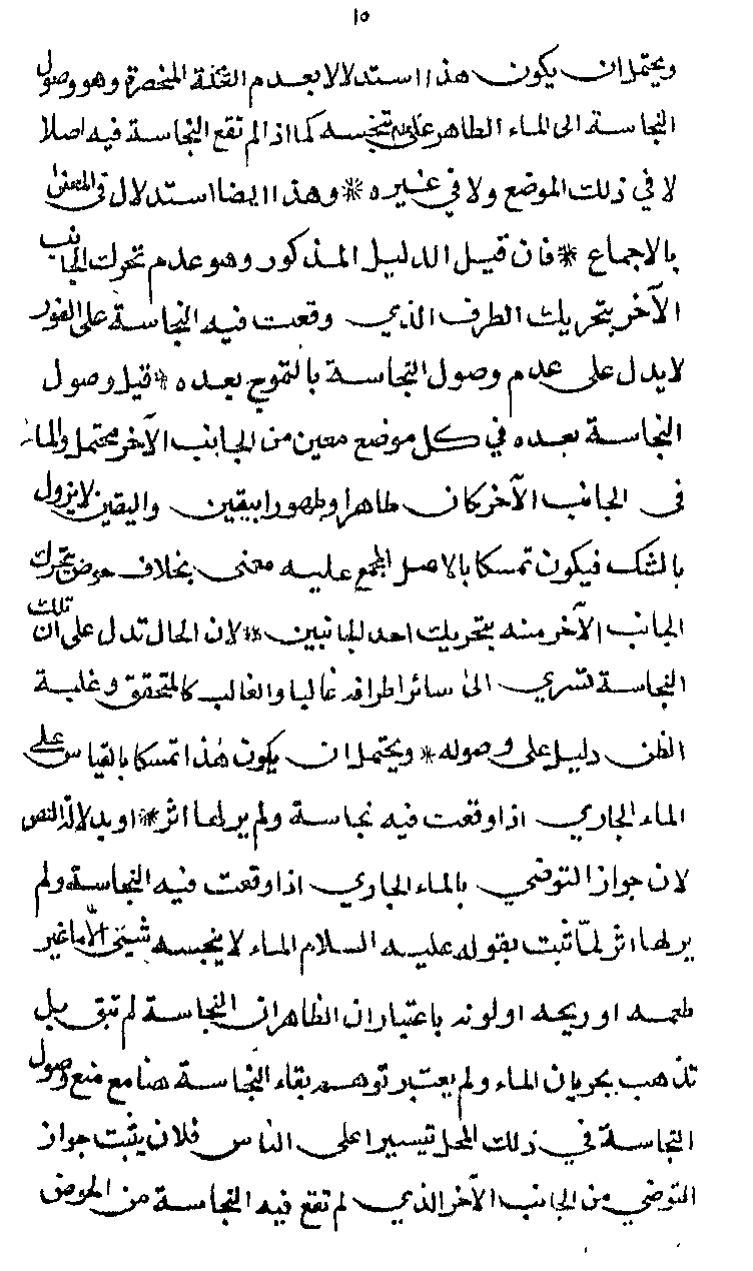 ١٥
ويحتمل ان يكون هذا استدلالا بعدم العلة المنحصرة وهو وصول
النجاسة الى الماء الطاهر على عدم تنجسه كما اذا لم تقع النجاسة فيه اصلا
لا في ذلك الموضع ولا في غيره * وهذا ايضا استدلال في المعنى
بالاجماع * فان قيل الدليل المذكور وهو عدم تحرك الجانب
الآخر بتحريك الطرف الذي وقعت فيه النجاسة على الفور
لا يدل على عدم وصول النجاسة بالتموج بعده * قيل وصول
النجاسة بعده في كل موضع معين من الجانب الآخر محتمل والماء
في الجانب الآخر كان طاهرا وطهورا بيقين واليقين لا يزول
بالشك فيكون تمسكا بالاصل المجمع عليه معنى بخلاف حوض يتحرك
الجانب الآخر منه بتحريك احد الجانبين * لان الحال تدل على ان تلك
النجاسة تسري الى سائر اطرافه غالبا والغالب كالمتحقق وغلبة
الظن دليل على وصوله * ويحتمل ان يكون هذا تمسكا بالقياس على
الماء الجاري اذا وقعت فيه نجاسة ولم ير لها اثر * او بدلالة النص
لان جواز التوضي بالماء الجاري اذا وقعت فيه النجاسة ولم
ير لها اثر لمّا ثبت بقوله عليه السلام الماء لا ينجسه شيئ الّا ما غير
طعمه او ريحه او لونه باعتبار ان الظاهر ان النجاسة لم تبق بل
تذهب بجريان الماء ولم يعتبر توهم بقاء النجاسة هنا مع منع وصول
النجاسة في ذلك المحل تيسيرا على الناس فلان يثبت جواز
التوضي من الجانب الآخر الذي لم تقع فيه النجاسة من الحوض